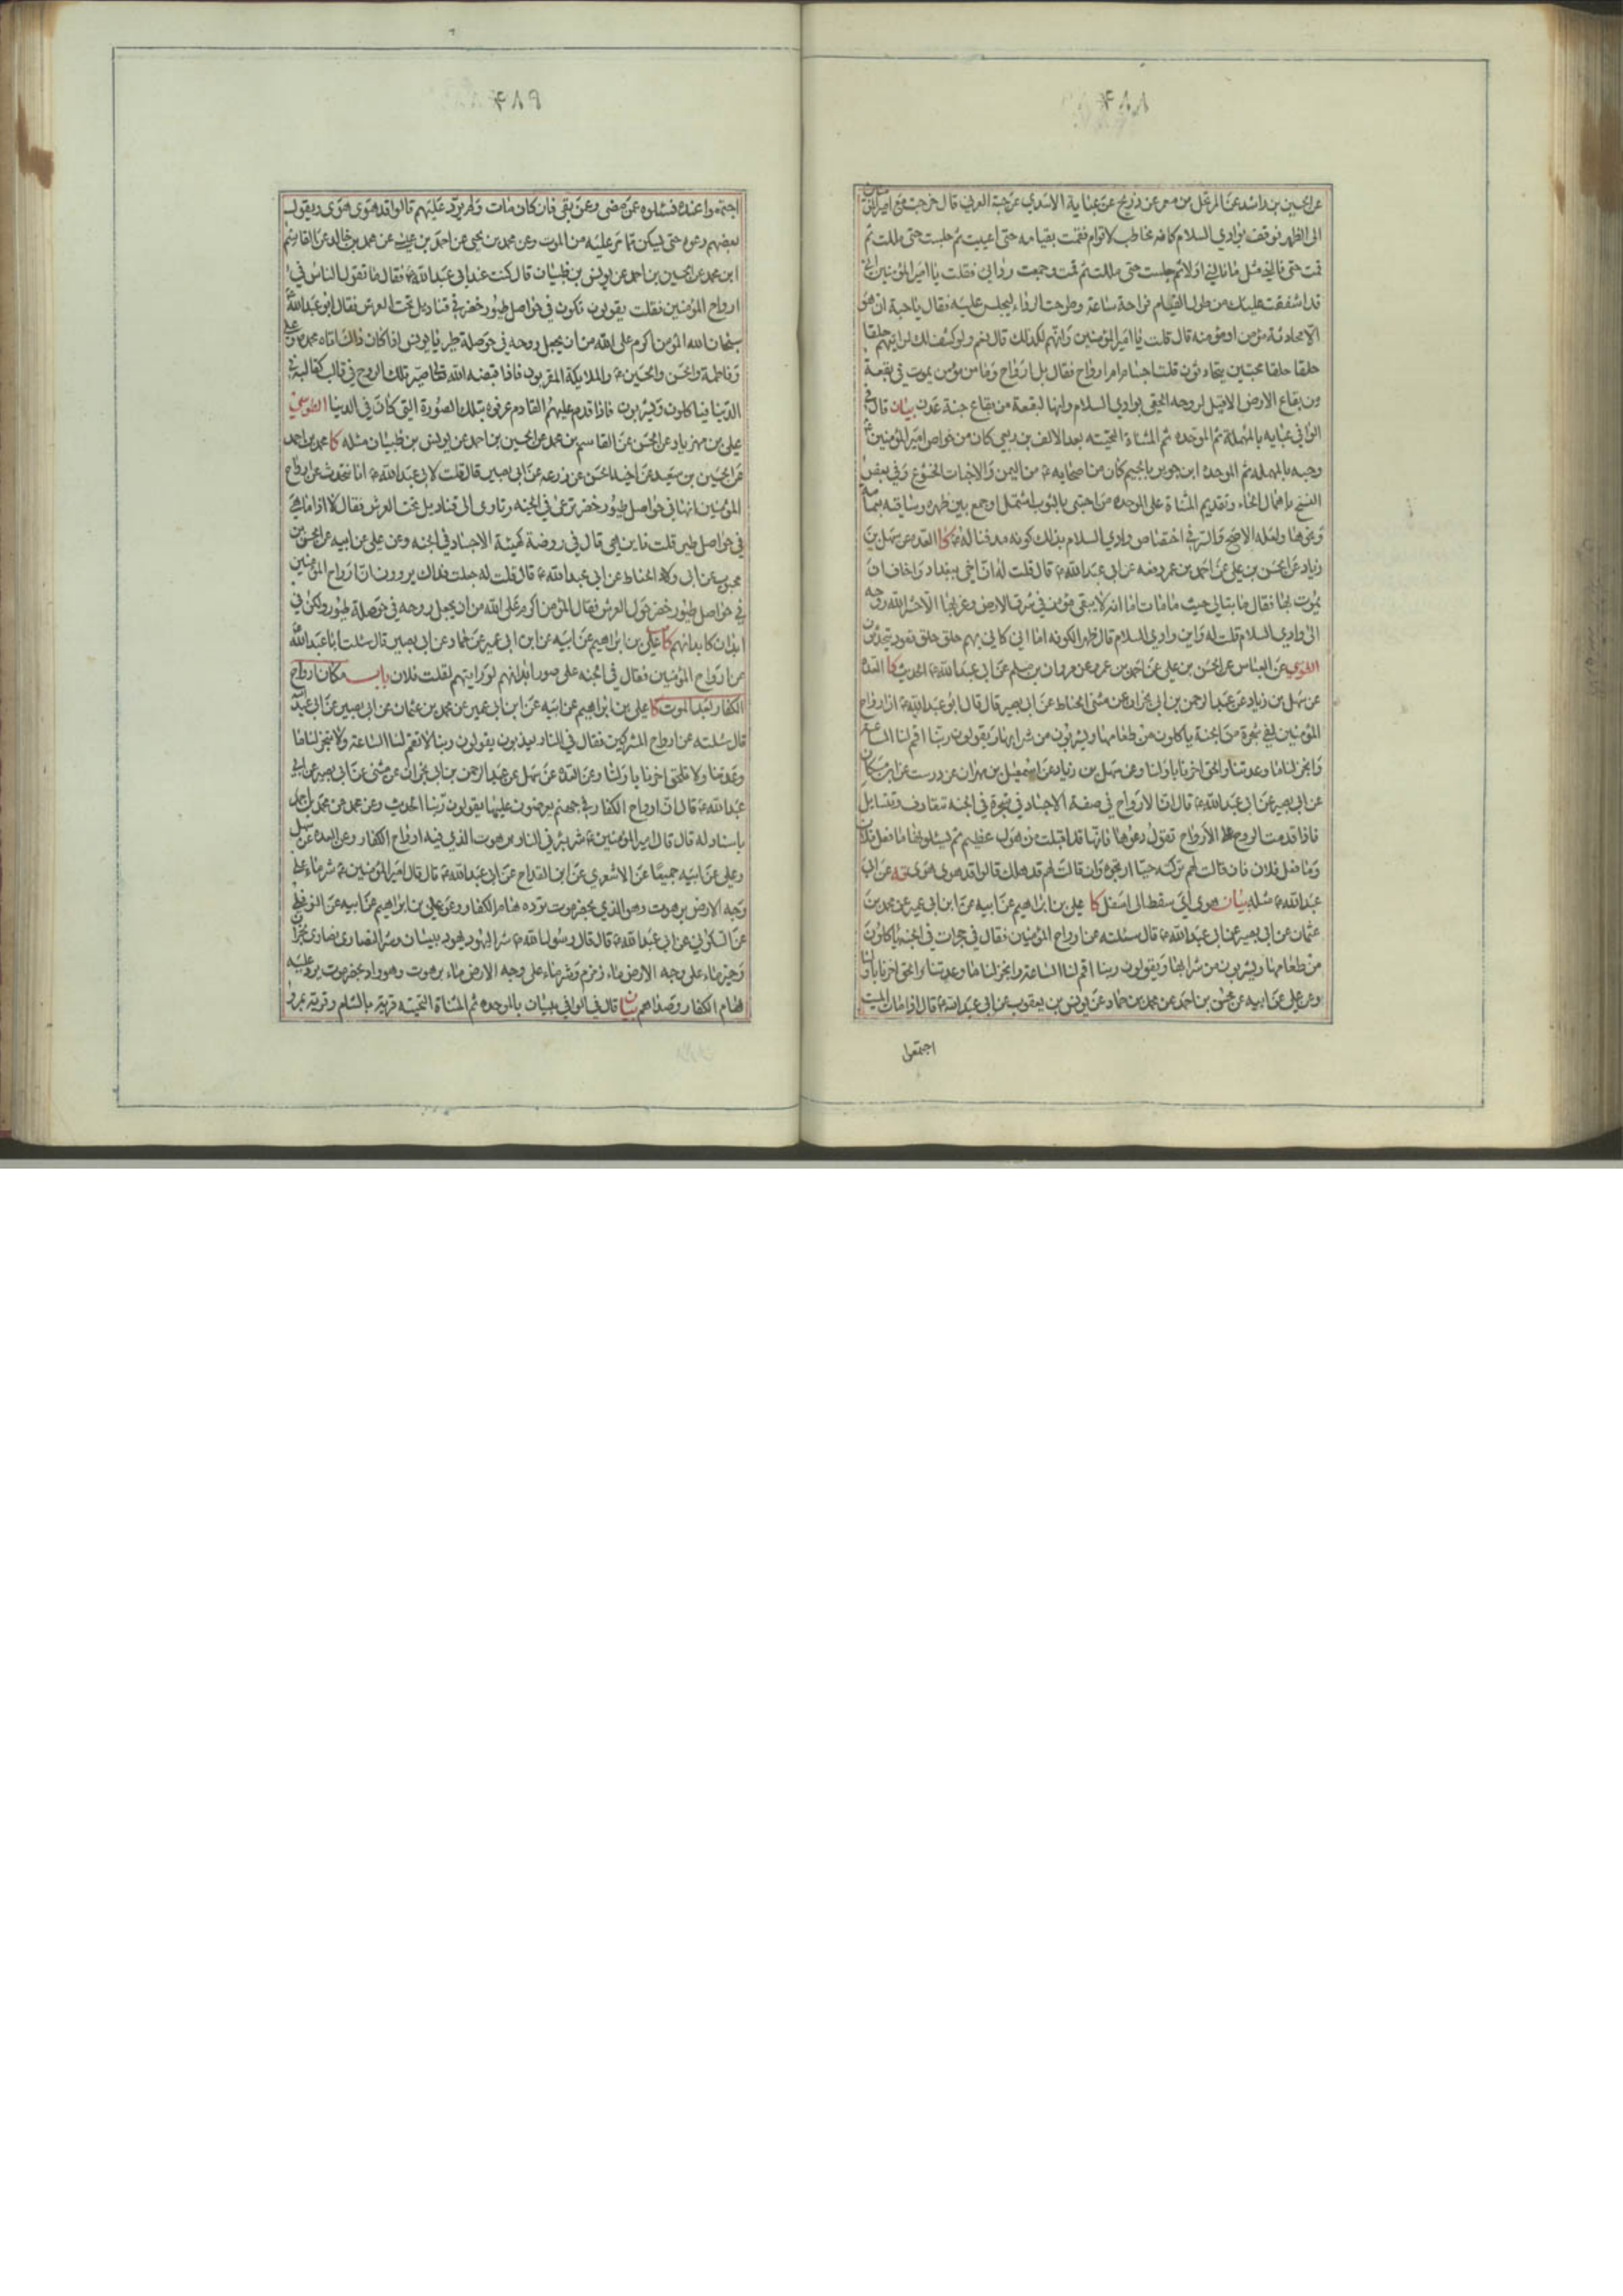 ۴۸۸
عن الحسين بن راشد عن المرتجل بن معمر عن ذريح عن عباية الاسدي عن حبة العرني قال خرجت مع امير المؤمنين
الى الظهر فوقف بوادي السلام كانه مخاطب لاقوام فقمت بقيامه حتى اعييت ثم جلست حتى مللت ثم
قمت حتى نالني مثل ما نالني اولا ثم جلست حتى مللت ثم قمت وجمعت ردائي فقلت يا امير المؤمنين اني
قد اشفقت عليك من طول القيام فراحة ساعة وطرحت الرداء ليجلس عليه فقال يا حبة ان هو
الا محادثة مؤمن او مؤنسته قال قلت يا امير المؤمنين وانهم لكذلك قال نعم ولو كشف لك لرايتهم حلقا
حلقا حلقا محتبين يتحادثون فقلت اجسام ام ارواح فقال بل ارواح وما من مؤمن يموت في بقعة
من بقاع الارض الا قيل لروحه الحقي بوادي السلام وانها لبقعة من بقاع جنة عدن بيان قال في
الوافي عبايه بالمهملة ثم الموحده ثم المثناة التحتيه بعد الالف بن ربعي كان من خواص امير المؤمنين ع
وحبه بالمهمله ثم الموحده ابن جوير بالجيم كان من اصحابه ع من اليمن والاخبات الخشوع وفي بعض
النسخ باهمال الحاء وتقديم المثناة على الموحده من احتبى بالثوب اشتمل او جمع بين ظهره وساقيه بعمامة
ونحوها ولعله الاصح والسر في اختصاص وادي السلام بذلك كونه مدفنا له ع كا العدة عن سهل بن
زياد عن الحسن بن علي عن احمد بن عمر رفعه عن ابي عبد الله ع قال قلت له ان اخي ببغداد واخاف ان
يموت بها فقال ما تبالي حيث ما مات اما انه لا يبقى مؤمن في شرق الارض وغربها الا حشر الله روحه
الى وادي السلام قلت له واين وادي السلام قال ظهر الكوفه اما اني كاني بهم حلق حلق قعود يتحدثون
الطوسي عن العباس عن الحسن بن علي عن احمد بن عمر عن مروان بن مسلم عن ابي عبد الله ع الحديث كا العدة
عن سهل بن زياد عن عبد الرحمن بن ابي نجران عن مثنى الحناط عن ابي بصير قال قال ابو عبد الله ع ان ارواح
المؤمنين لفي شجرة من الجنة ياكلون من طعامها ويشربون من شرابها ويقولون ربنا اقم لنا الساعة
وانجز لنا ما وعدتنا والحق اخرنا باولنا وعن سهل بن زياد عن اسمعيل بن مهران عن درست عن ابن مسكان
عن ابي بصير عن ابي عبد الله ع قال ان الارواح في صفة الاجساد في شجرة في الجنه تتعارف وتتسايل
فاذا قدمت الروح على الارواح تقول دعوها فانها قد اقبلت من هول عظيم ثم يسئلونها ما فعل فلان
وما فعل فلان فان قالت لهم تركته حيا ارتجوه وان قالت لهم قد هلك قالوا قد هوى هوى يه عن ابي
عبد الله ع مثله بيان هوى اي سقط الى اسفل كا علي بن ابراهيم عن ابيه عن ابن ابي عمير عن محمد بن
عثمان عن ابي بصير عن ابي عبد الله ع قال سئلته عن ارواح المؤمنين فقال في حجرات في الجنه ياكلون
من طعامها ويشربون من شرابها ويقولون ربنا اقم لنا الساعة وانجز لنا ما وعدتنا والحق اخرنا باولنا
وعن علي عن ابيه عن محسن بن احمد عن محمد بن حماد عن يونس بن يعقوب عن ابي عبد الله ع قال اذا مات الميت
اجتمعوا
۴۸۹
اجتمعوا عنده فسئلوه عمن مضى وعمن بقي فان كان مات ولم يرد عليهم قالوا قد هوى هوى ويقول
بعضهم دعوه حتى يسكن مما مر عليه من الموت وعن محمد بن يحيى عن احمد بن عيسى عن محمد بن خالد عن القاسم
ابن محمد عن الحسين بن احمد عن يونس بن ظبيان قال كنت عند ابي عبد الله ع فقال ما تقول الناس في
ارواح المؤمنين فقلت يقولون تكون في حواصل طيور خضر في قناديل تحت العرش فقال ابو عبد الله ع
سبحان الله المؤمن اكرم على الله من ان يجعل روحه في حوصلة طير يا يونس اذا كان ذلك اتاه محمد ص وعلي
وفاطمة والحسن والحسين ع والملائكة المقربون فاذا قبضه الله تعالى صير تلك الروح في قالب كقالبه في
الدنيا فياكلون ويشربون فاذا قدم عليهم القادم عرفوه بتلك الصورة التي كانت في الدنيا الطوسي
علي بن مهزيار عن الحسن عن القاسم بن محمد عن الحسين بن احمد عن يونس بن ظبيان مثله كا محمد بن احمد
عن الحسين بن سعيد عن اخيه الحسن عن زرعه عن ابي بصير قال قلت لابي عبد الله ع انا نتحدث عن ارواح
المؤمنين انها في حواصل طيور خضر ترعى في الجنه وتاوي الى قناديل تحت العرش فقال لا اذا ما هي
في حواصل طير قلت فاين هي قال في روضة كهيئة الاجساد في الجنه وعن علي عن ابيه عن الحسن بن
محبوب عن ابي ولاد الحناط عن ابي عبد الله ع قال قلت له جعلت فداك يروون ان ارواح المؤمنين
في حواصل طيور خضر حول العرش فقال المؤمن اكرم على الله من ان يجعل روحه في حوصلة طيور ولكن في
ابدان كابدانهم كا علي بن ابراهيم عن ابيه عن ابن ابي عمير عن حماد عن ابي بصير قال سئلت ابا عبد الله ع
عن ارواح المؤمنين فقال في الجنه على صور ابدانهم لو رايتهم لقلت فلان باب مكان ارواح
الكفار بعد الموت كا علي بن ابراهيم عن ابيه عن ابن ابي عمير عن محمد بن عثمان عن ابي بصير عن ابي عبد الله
قال سئلته عن ارواح المشركين فقال في النار يعذبون يقولون ربنا لا تقم لنا الساعة ولا تنجز لنا ما
وعدتنا ولا تلحق اخرنا باولنا وعن العدة عن سهل عن عبد الرحمن بن ابي نجران عن مثنى عن ابي بصير عن ابي
عبد الله ع قال ان ارواح الكفار في جهنم يعرضون عليها يقولون ربنا الحديث وعن محمد عن محمد بن احمد
باسناد له قال قال امير المؤمنين ع شر بئر في النار برهوت الذي فيه ارواح الكفار وعن العدة عن سهل
وعلي عن ابيه جميعا عن الاشعري عن ابن القداح عن ابي عبد الله ع قال قال امير المؤمنين ع شر ماء على
وجه الارض برهوت وهو الذي بحضرموت ترده هام الكفار وعن علي بن ابراهيم عن ابيه عن النوفلي
عن السكوني عن ابي عبد الله ع قال قال رسول الله ص شر اليهود يهود بيسان وشر النصارى نصارى نجران
وخير ماء على وجه الارض ماء زمزم وشر ماء على وجه الارض ماء برهوت وهو واد بحضرموت يرد عليه
هام الكفار وصداهم بيان قال في الوافي بيسان بالموحده ثم المثناة التحتيه قرية بالشام وقرية بمرو